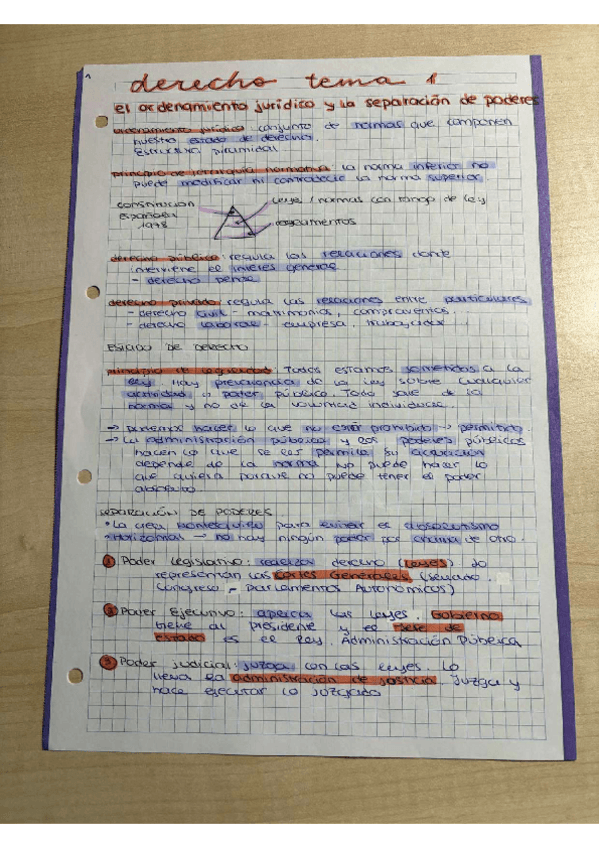 1
derecho tema 1
el ordenamiento jurídico y la separación de poderes
ordenamiento jurídico: conjunto de normas que componen
nuestro estado de derecho.
Estructura piramidal
principio de jerarquía normativa: la norma inferior no
puede modificar ni contradecir la norma superior.
constitución
española
1978
Leyes / normas con rango de ley
reglamentos
derecho público: regula las relaciones donde
interviene el interés general
- derecho penal
derecho privado: regula las relaciones entre particulares
- derecho civil - matrimonios, compraventas.
- derecho laboral - empresa, trabajador
ESTADO DE DERECHO
principio de legalidad: Todos estamos sometidos a la
ley. Hay prevalencia de la ley sobre cualquier
actividad o poder público. Todo sale de la
norma y no de la voluntad individual.
→ podemos hacer lo que no esté prohibido → permitido
→ La administración pública y los poderes públicos
hacen lo que se les permite. Su actuación
depende de la norma. No puede hacer lo
que quiera porque no puede tener el poder
absoluto.
SEPARACIÓN DE PODERES
• La crea Montesquieu para evitar el absolutismo
• Horizontal → no hay ningún poder por encima de otro.
1 Poder Legislativo: realiza derecho (Leyes) lo
representan las Cortes Generales. (Senado,
Congreso - Parlamentos Autonómicos)
2 Poder Ejecutivo: aplica las leyes. Gobierno
tiene al presidente y el Jefe de
Estado es el Rey. Administración Pública
3 Poder judicial: juzga con las leyes. Lo
lleva la administración de justicia. Juzga y
hace ejecutar lo juzgado